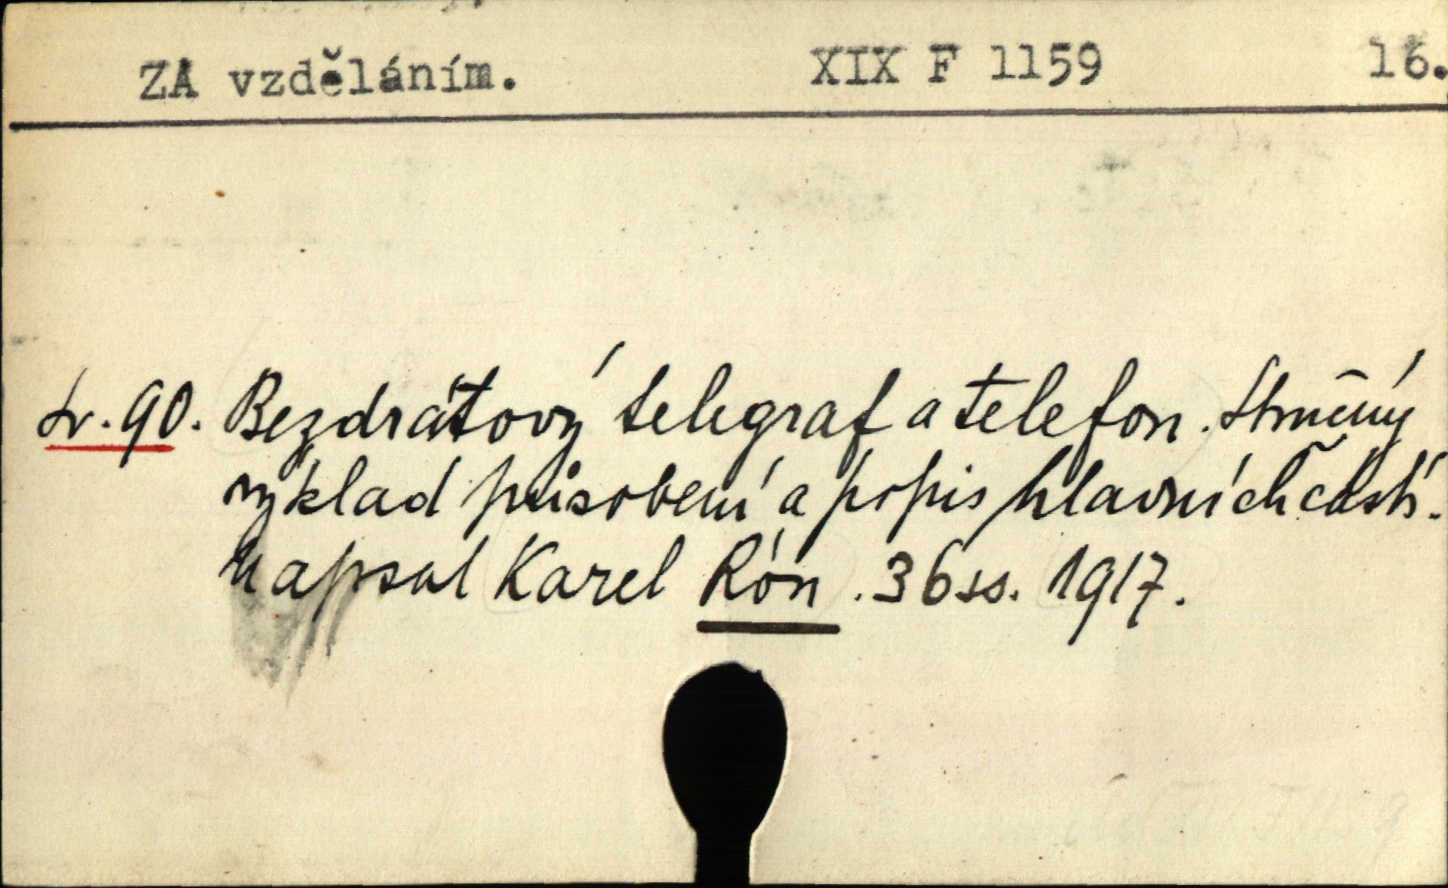 ZA vzděláním. XIX F 1159 16.
Sv. 90. Bezdrátový telegraf a telefon. Stručný
výklad působení a popis hlavních částí.
Napsal Karel Rón. 36 ss. 1917.